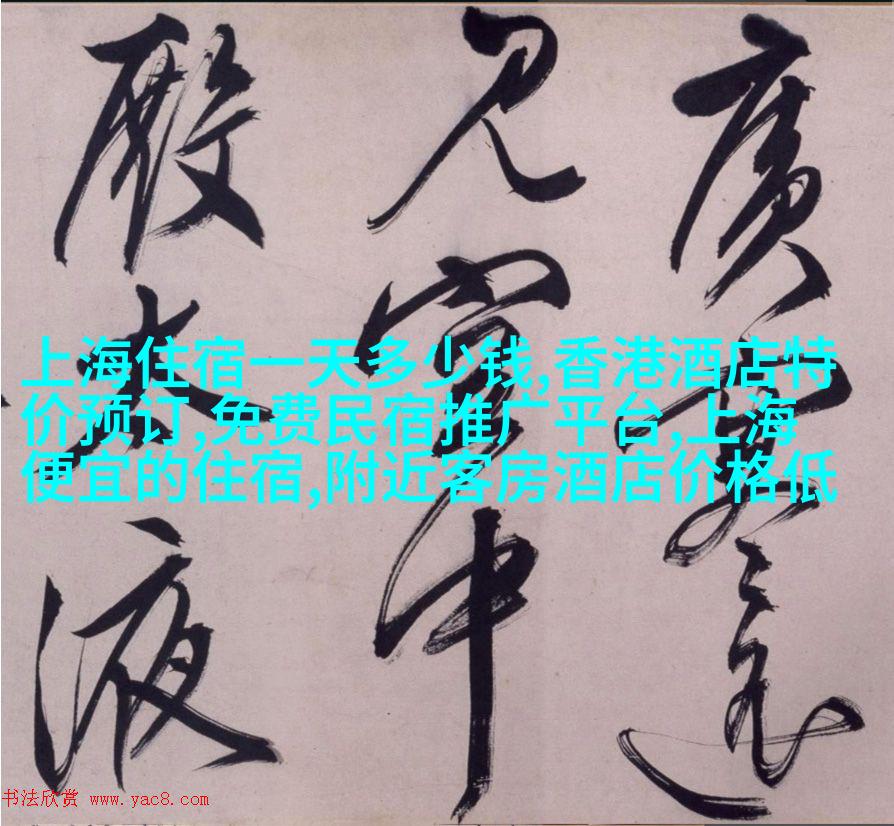 廣寒遥
见空中
殿太液
上海住宿一天多少钱,香港酒店特
价预订,免费民宿推广平台,上海
便宜的住宿,附近客房酒店价格低
书法欣赏 www.yac8.com